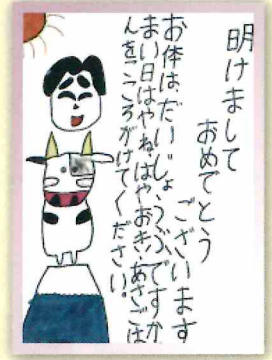 明けまして
おめでとう
ございます
お体はだいじょうぶですか
まい日はやねはやおき、あさごは
んをこころがけてください。